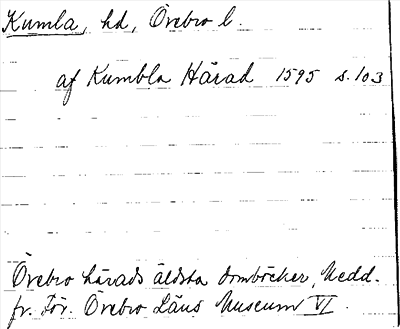 Kumla, hd, Örebro l.
af Kumbla Härad 1595 s. 103
Örebro härads äldsta domböcker, Medd.
fr. För. Örebro Läns Museum VI.